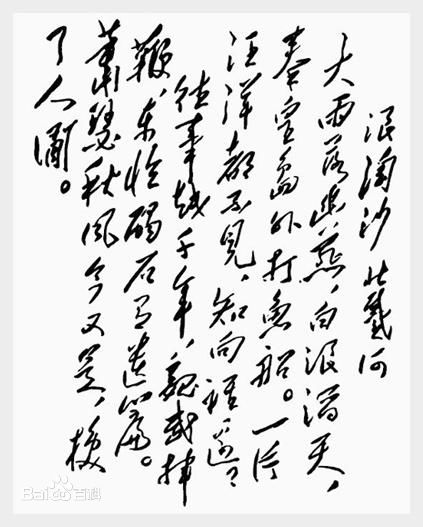 浪淘沙 北戴河
大雨落幽燕,白浪滔天,
秦皇岛外打鱼船。一片
汪洋都不见,知向谁边?
往事越千年,魏武挥
鞭,东临碣石有遗篇。
蕭瑟秋风今又是,换
了人间。
Bai百科